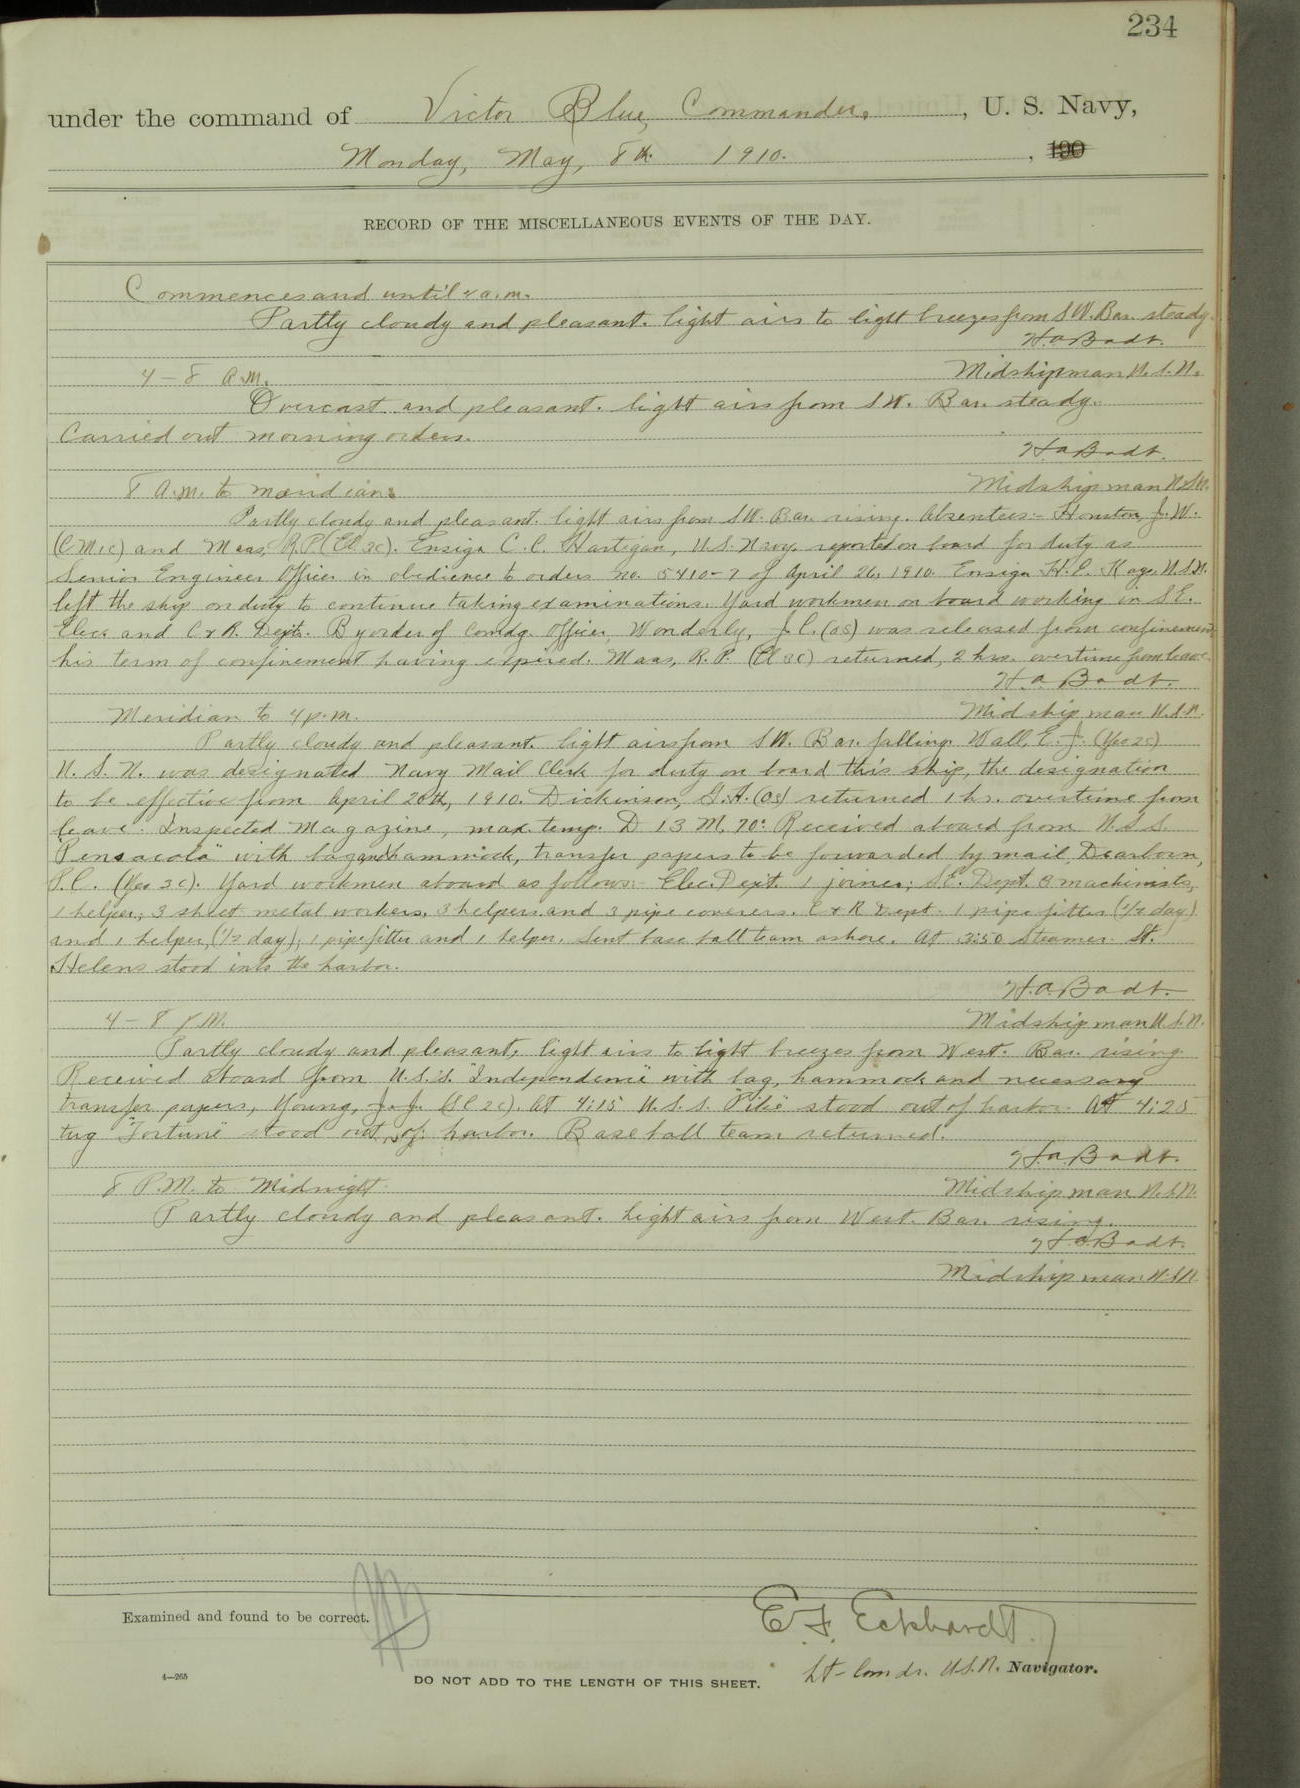 234
under the command of Victor Blue, Commander, U. S. Navy,
Monday, May, 8th 1910. , 190
RECORD OF THE MISCELLANEOUS EVENTS OF THE DAY.
Commences and until 4 a.m.
Partly cloudy and pleasant. light airs to light breezes from SW. Bar. steady.
H.A. Badt.
Midshipman U.S.N.
4 – 8 A.M.
Overcast and pleasant. light airs from SW. Bar. steady.
Carried out morning orders.
H.A. Badt.
Midshipman U.S.N.
8 A.M. to meridian:
Partly cloudy and pleasant. light airs from SW. Bar. rising. Absentees:- Houston, J.W.
(CM1c) and Maas, R.P. (El 3c). Ensign C.C. Hartigan, U.S. Navy, reported on board for duty as
Senior Engineer Officer in obedience to orders no. 5410-7 of April 26, 1910. Ensign H.C. Kays U.S.N.
left the ship on duty to continue taking examinations. Yard workmen on board working in S.E.
Elec. and C & R. Depts. By order of Comdg. Officer, Wonderly, J.C. (OS) was released from confinement
his term of confinement having expired. Maas, R.P. (El 3c) returned, 2 hrs. overtime from leave.
H.A. Badt.
Midshipman U.S.N.
Meridian to 4 p.m.
Partly cloudy and pleasant. light airs from SW. Bar. falling. Wall, E.J. (Yeo 2c)
U.S.N. was designated Navy Mail Clerk for duty on board this ship, the designation
to be effective from April 20th, 1910. Dickinson, G.A. (OS) returned 1 hr. overtime from
leave. Inspected Magazine, max. temp. D 13 M, 70°. Received aboard from U.S.S.
"Pensacola" with bag and hammock, transfer papers to be forwarded by mail, Dearborn,
P.C. (Yeo 3c). Yard workmen aboard as follows:- Elec. Dept. 1 joiner; S.E. Dept. 8 machinists,
1 helper, 3 sheet metal workers, 3 helpers and 3 pipe coverers. C & R Dept. 1 pipe fitter (1/2 day)
and 1 helper, (1/2 day), 1 pipe fitter and 1 helper. Sent base ball team ashore. At 3:50 Steamer St.
Helens stood into the harbor.
H.A. Badt.
Midshipman U.S.N.
4 – 8 P.M.
Partly cloudy and pleasant, light airs to light breezes from West. Bar. rising.
Received aboard from U.S.S. "Independence" with bag, hammock and necessary
transfer papers, Young, J.J. (SC 2c). At 4:15 U.S.S. "Pike" stood out of harbor. At 4:25
tug "Fortune" stood out of harbor. Baseball team returned.
H.A. Badt.
Midshipman U.S.N.
8 P.M. to Midnight.
Partly cloudy and pleasant. light airs from West. Bar. rising.
H.A. Badt.
Midshipman U.S.N.
Examined and found to be correct.
E.F. Eckhardt
Lt-Comdr. U.S.N. Navigator.
4—265
DO NOT ADD TO THE LENGTH OF THIS SHEET.